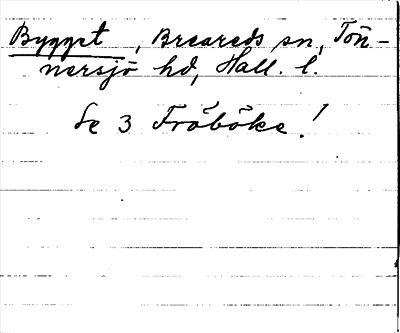 Bygget, Breareds sn, Tön-
nersjö hd, Hall. l.
Se 3 Fröböke!